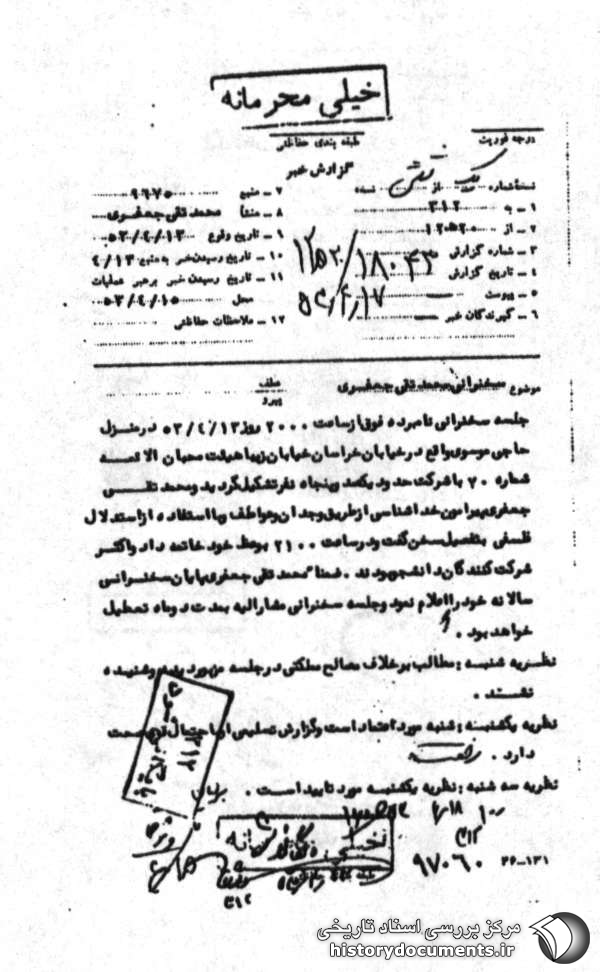 خیلی محرمانه
طبقه بندی حفاظتی
درجه فوریت
گزارش خبر
نسخه شماره یک از شش نسخه
۱ ـ به ۳۱۲
۲ ـ از ۲۰ ه‍ ۱۲
۳ ـ شماره گزارش ۱۸۰۴۳/۲۰ ه‍ ۱۲
۴ ـ تاریخ گزارش ۵۳/۴/۱۷
۵ ـ پیوست
۶ ـ گیرندگان خبر
۷ ـ منبع ۹۶۷۵
۸ ـ منشأ محمدتقی جعفری
۹ ـ تاریخ وقوع ۵۳/۴/۱۳
۱۰ ـ تاریخ رسیدن خبر به منبع ۴/۱۳
۱۱ ـ تاریخ رسیدن خبر برهبر عملیات
محل ۵۳/۴/۱۵
۱۲ ـ ملاحظات حفاظتی
موضوع سخنرانی محمد تقی جعفری
عطف
پیرو
جلسه سخنرانی نامبرده فوق از ساعت ۲۰۰۰ روز ۵۳/۴/۱۳ در منزل
حاجی موسوی واقع در خیابان خراسان خیابان زیبا هیئت محبان الائمه
شماره ۷۰ با شرکت حدود یکصد و پنجاه نفر تشکیل گردید و محمد تقی
جعفری پیرامون خداشناسی از طریق وجدان و عواطف و با استفاده از استدلال
فلسفی بتفصیل سخن گفت و در ساعت ۲۱۰۰ بوعظ خود خاتمه داد و اکثر
شرکت کنندگان دانشجو بودند . ضمنا محمد تقی جعفری پایان سخنرانی
سالانه خود را اعلام نمود و جلسه سخنرانی مشارالیه بمدت دو ماه تعطیل
خواهد بود .
نظریه شنبه : مطالب بر خلاف مصالح مملکتی در جلسه مزبور دیده و شنیده
نشد .
نظریه یکشنبه : شنبه مورد اعتماد است و گزارش تسلیمی او احتمال قوی صحت
دارد .
نظریه سه شنبه : نظریه یکشنبه مورد تایید است .
خیلی محرمانه
۳۱۲
۹۷۰۶۰
۲۶-۱۳۱
مرکز بررسی اسناد تاریخی
historydocuments.ir